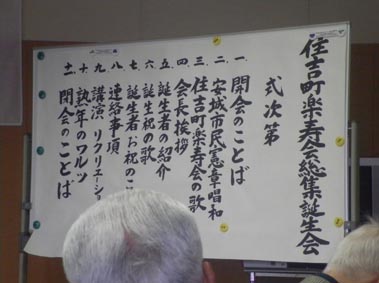 住吉町楽寿会総集誕生会
式次第
一、開会のことば
二、安城市民憲章唱和
三、住吉町楽寿会の歌
四、会長挨拶
五、誕生者の紹介
六、誕生祝の歌
七、誕生者お祝のこ
八、連絡事項
九、講演、リクリエーショ
十、熟年のワルツ
十一、閉会のことば